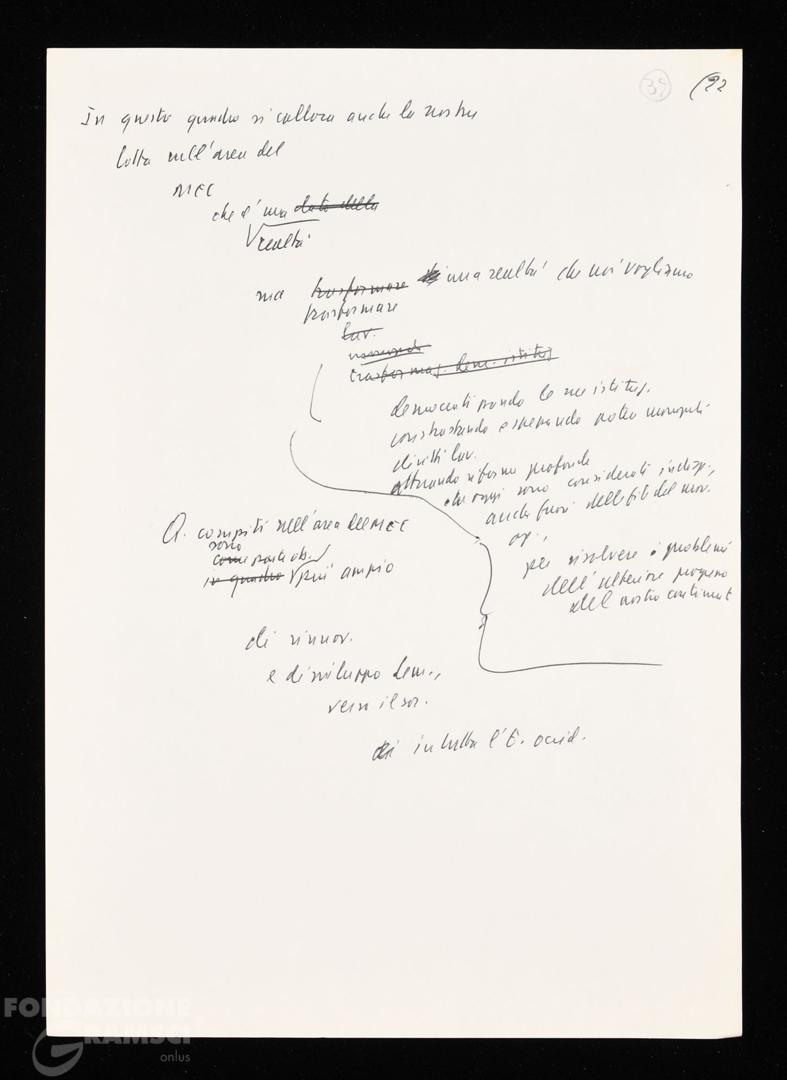 39 (92
In questo quadro si colloca anche la nostra
lotta nell'area del
MEC
che è una dato della
realtà
ma trasformare una realtà che noi vogliamo
trasformare
lav.
trasformaz. dem. istituz
democratizzando le sue istituz.
contrastando e spezzando potere monopoli
diritti lav.
attuando riforme profonde
che oggi sono considerati indisp.,
anche fuori delle file del mov.
op.,
per risolvere i problemi
dell'ulteriore progresso
del nostro continente
Q. compiti nell'area del MEC
sono
come parte ob.
in quadro più ampio
di rinnov.
e di sviluppo dem.,
verso il soc.
in tutta l'E. occid.
FONDAZIONE
GRAMSCI
onlus